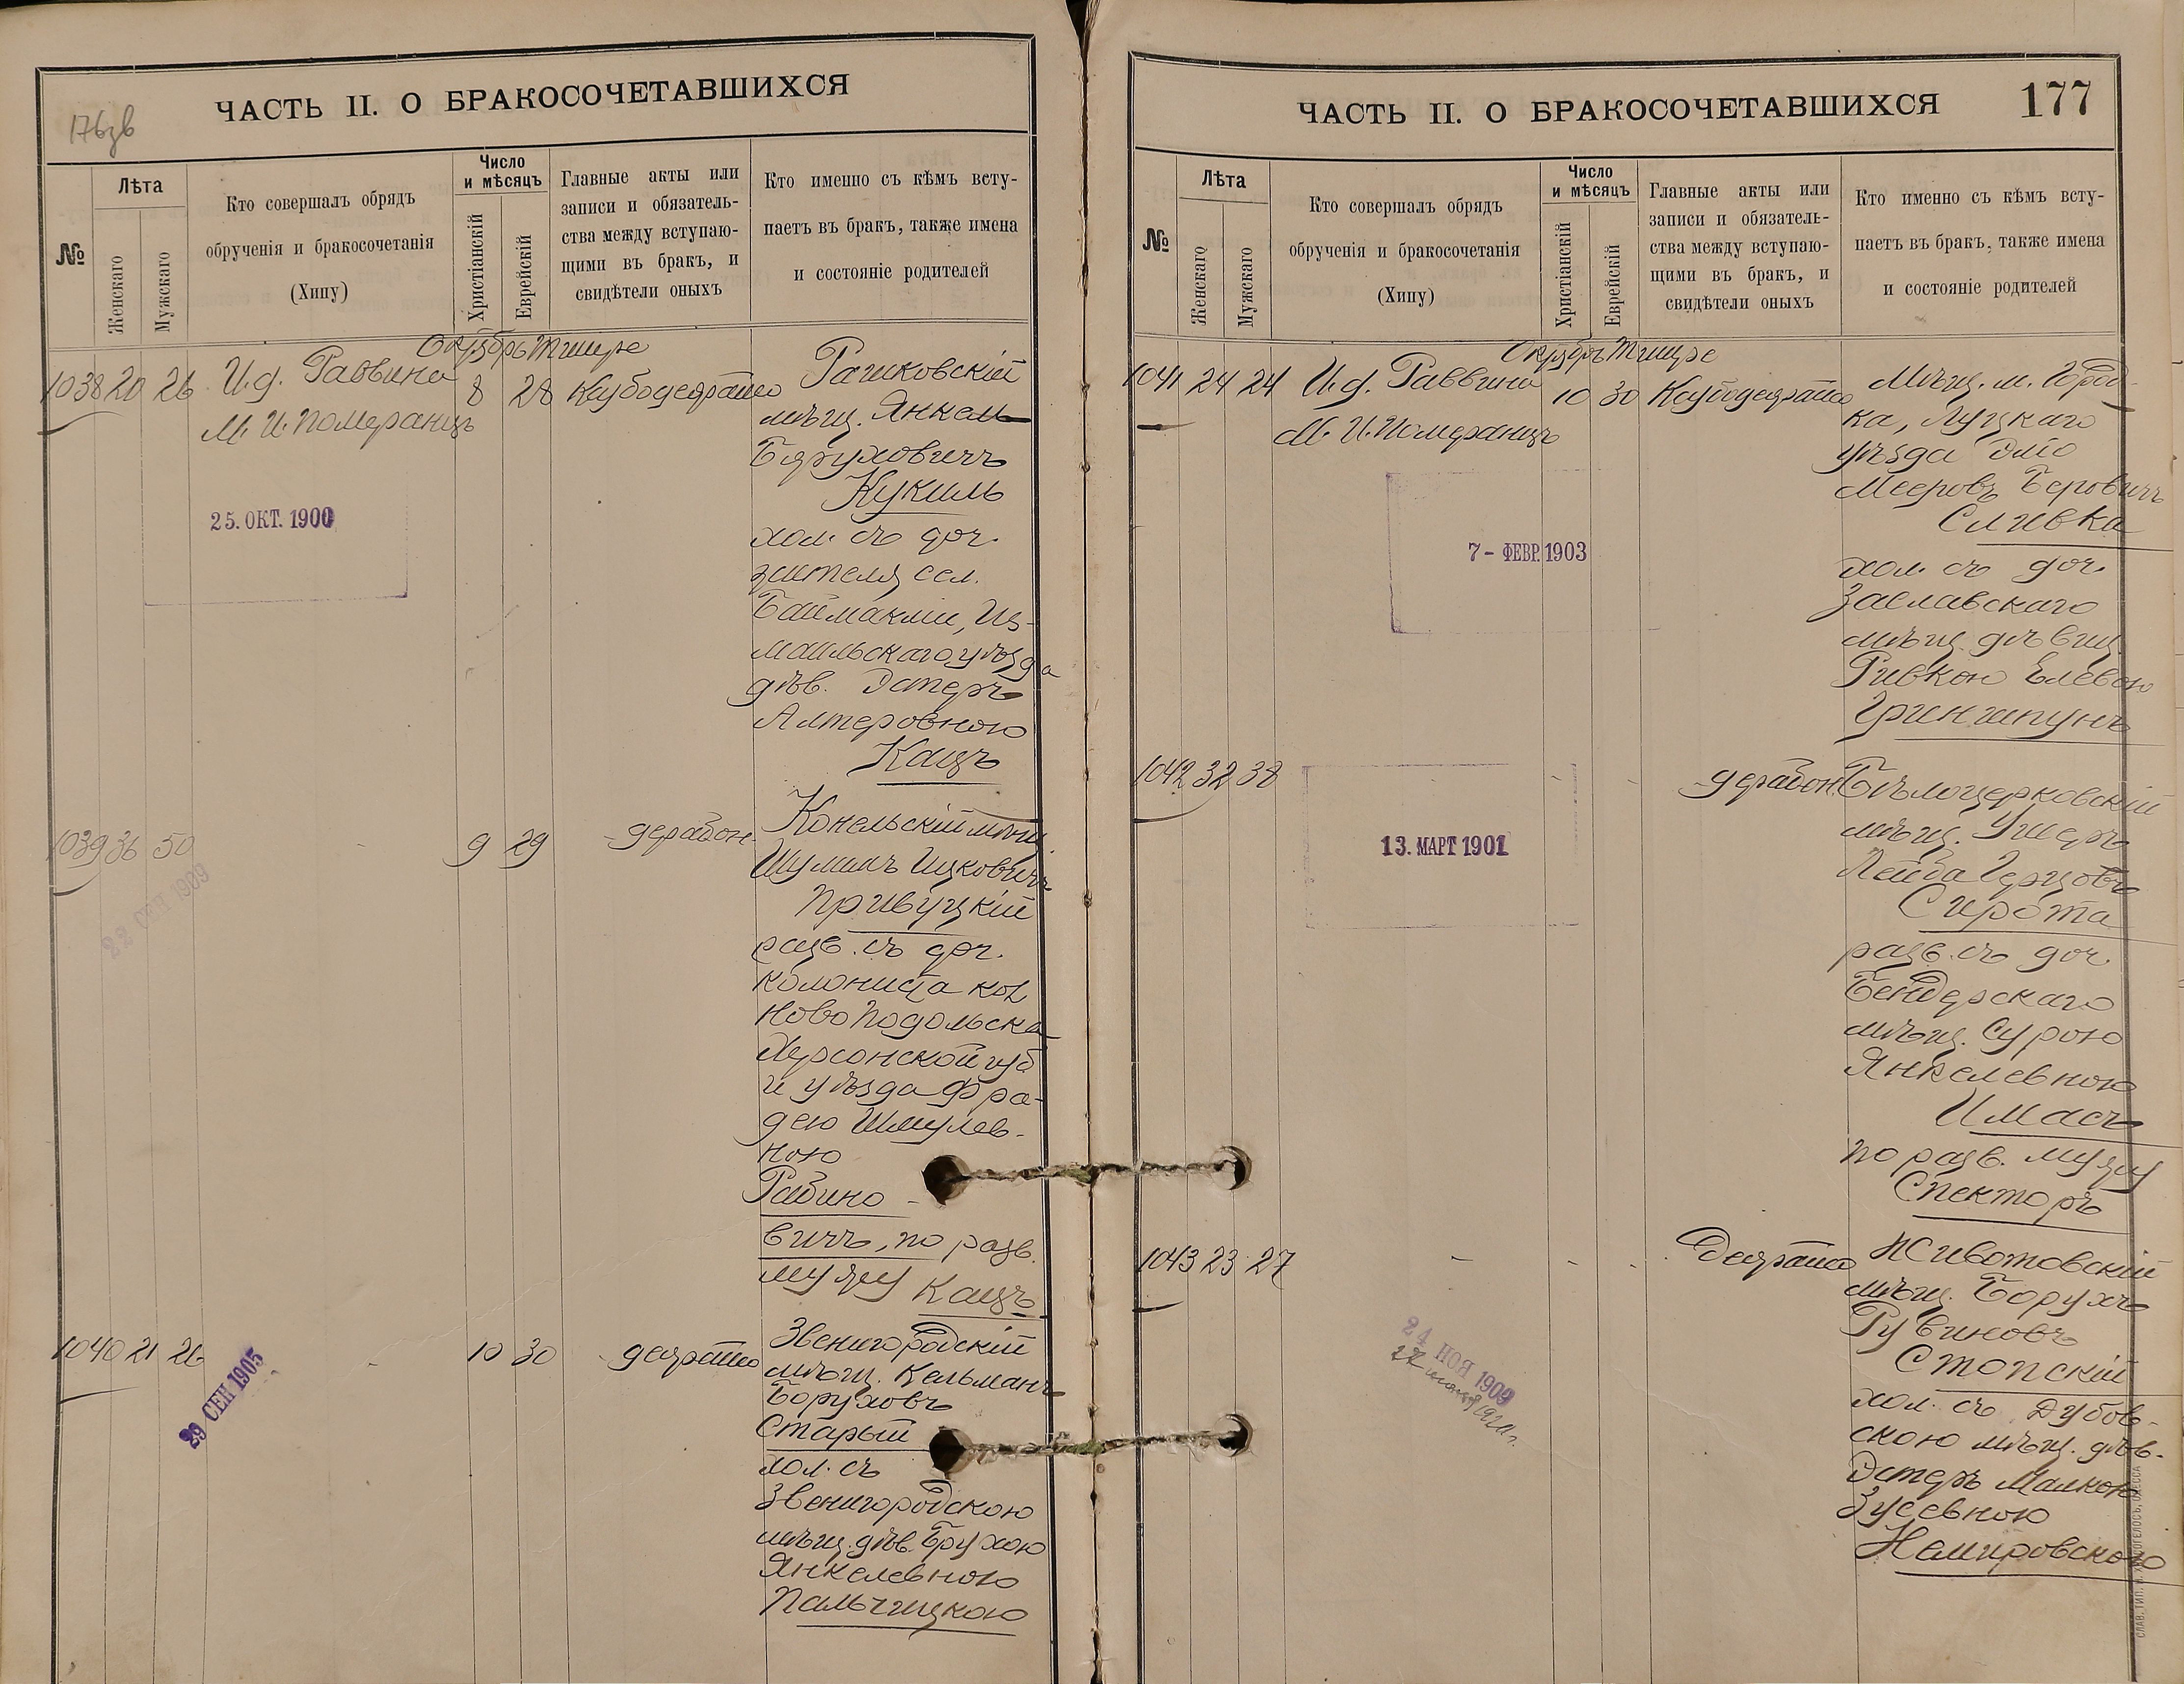 176 зв
ЧАСТЬ II. О БРАКОСОЧЕТАВШИХСЯ
№
Лѣта
Женскаго
Мужскаго
Кто совершалъ обрядъ
обрученія и бракосочетанія
(Хипу)
Число
и мѣсяцъ
Христіанскій
Еврейскій
Главные акты или
записи и обязатель-
ства между вступаю-
щими въ бракъ, и
свидѣтели оныхъ
Кто именно съ кѣмъ всту-
паетъ въ бракъ, также имена
и состояніе родителей
Октябрь Тишре
1038 20 26 И.д. Раввина 8 28
М. И. Померанцъ
25. ОКТ. 1900
Рашковскій
мѣщ. Янкель
Беруховичъ
Кукиль
хол. съ доч.
жителя сел.
Баймакліи, Из-
маильскаго уѣзда
дѣв. Эстеръ
Алтеровною
Кацъ
1039 36 50 - 9 29
22 СЕН 1909
Конельскій мѣщ.
Шулимъ Ицковичъ
Привуцкій
разв. съ доч.
колониста кол.
Ново Подольска
Херсонской губ
и уѣзда Фра-
дею Шмулев-
ною
Рабино-
вичъ, по разв.
мужу Кацъ
1040 21 26 - 10 30
29 СЕН 1905
Звенигородскій
мѣщ. Кельманъ
Боруховъ
Старый
хол. съ
Звенигородскою
мѣщ. дѣв. Брухою
Янкелевною
Пальчицкою
ЧАСТЬ II. О БРАКОСОЧЕТАВШИХСЯ
177
№
Лѣта
Женскаго
Мужскаго
Кто совершалъ обрядъ
обрученія и бракосочетанія
(Хипу)
Число
и мѣсяцъ
Христіанскій
Еврейскій
Главные акты или
записи и обязатель-
ства между вступаю-
щими въ бракъ, и
свидѣтели оныхъ
Кто именно съ кѣмъ всту-
паетъ въ бракъ, также имена
и состояніе родителей
Октябрь Тишре
1041 24 24 И.д. Раввина 10 30
М. И. Померанцъ
7 - ФЕВР. 1903
Мѣщ. м. Город-
ка, Луцкаго
уѣзда Эліо
Мееровъ Беровичъ
Сливка
хол. съ доч.
Заславскаго
мѣщ. дѣвиц.
Ривкою Елевою
Гриншпунъ
1042 32 38 - - -
13. МАРТ 1901
Бѣлоцерковскій
мѣщ. Ушеръ
Лейба Герцовъ
Сирота
разв. съ доч.
Бендерскаго
мѣщ. Сурою
Янкелевною
Имасъ
по разв. мужу
Спекторъ
1043 23 27 - - -
24 НОЯ 1909
Животовскій
мѣщ. Борухъ
Рувиновъ
Стопскій
хол. съ Дубов-
скою мѣщ. дѣв.
Эстеръ Малкою
Зусевною
Немировскою